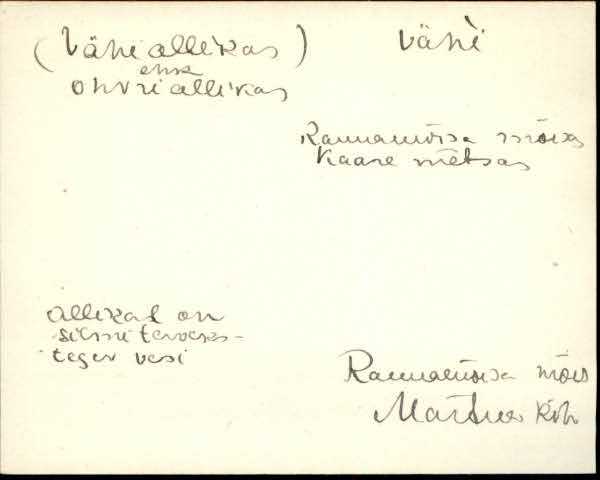 (Vähiallikas) Vähi
ehk
ohvriallikas
Rannamõisa mõisa
Kaare metsas
allikal on
silmi terveks-
tegev vesi
Rannamõisa mõis
Martna Kih